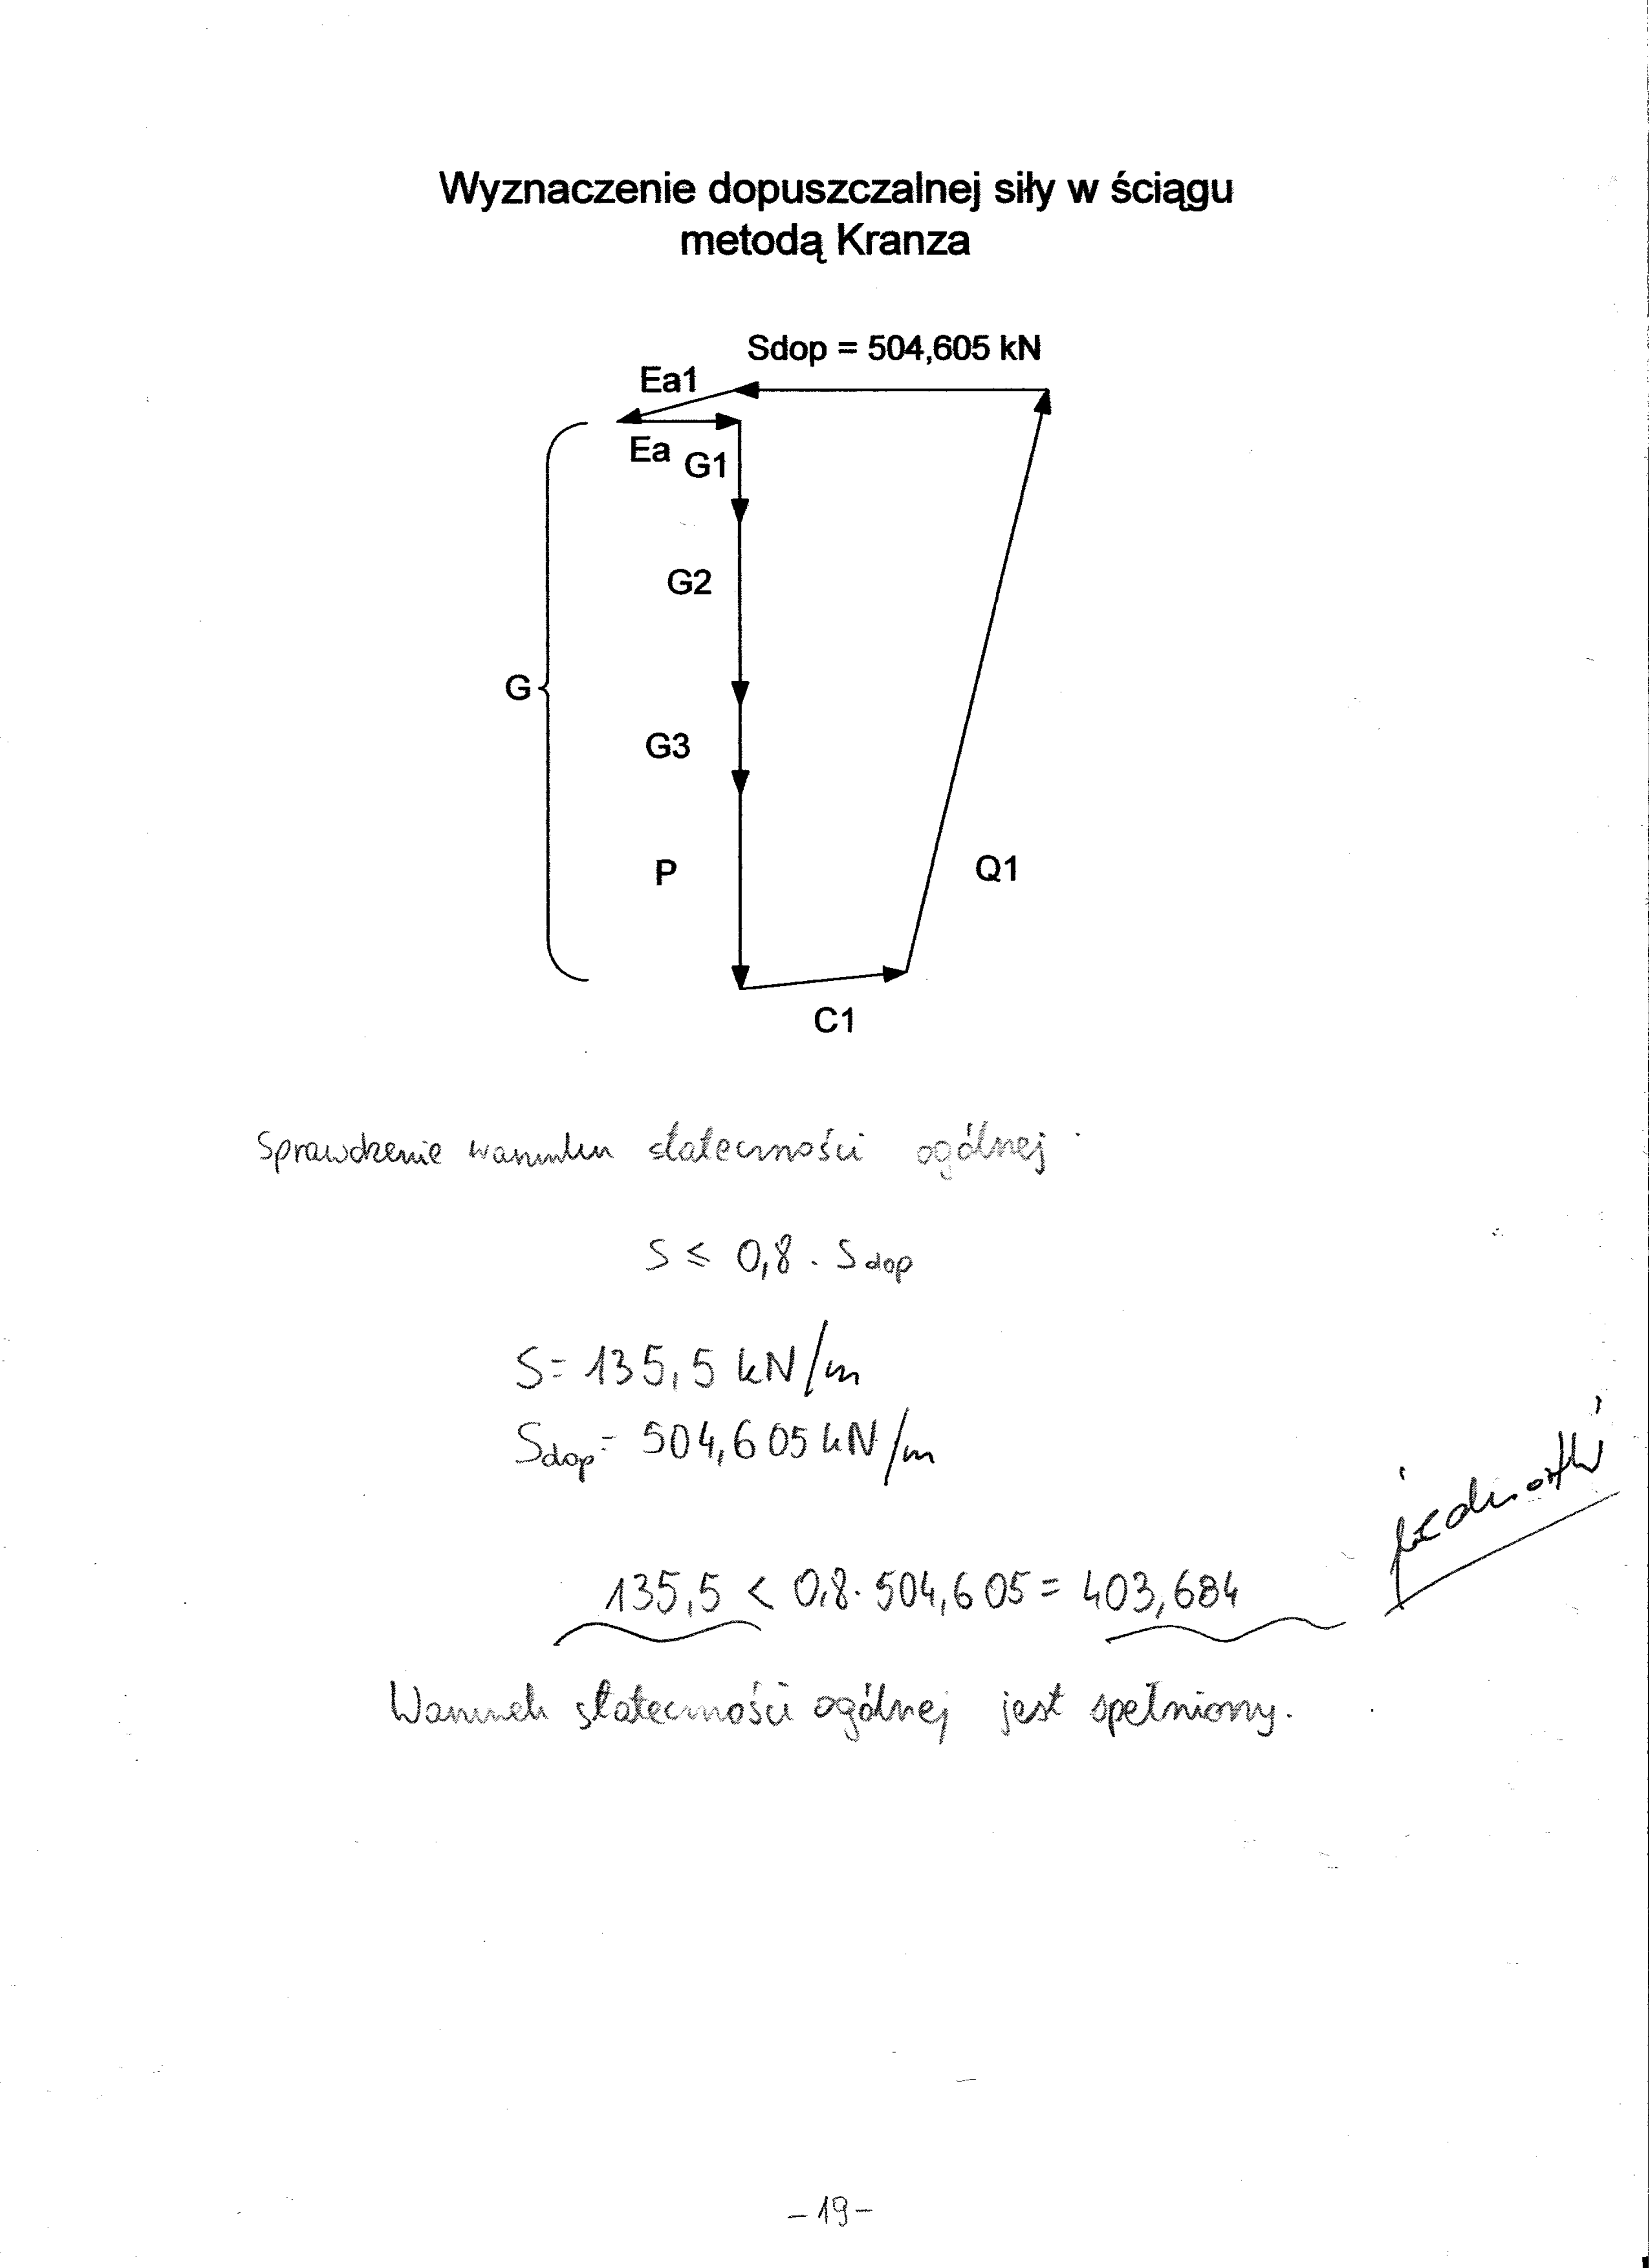 Wyznaczenie dopuszczalnej siły w ściągu
metodą Kranza
Sdop = 504,605 kN
Ea1
Ea
G1
G2
G
G3
P
Q1
C1
Sprawdzenie warunku stateczności ogólnej
S ≤ 0,8 · Sdop
S = 135,5 kN/m
Sdop = 504,605 kN/m
jednostki
135,5 < 0,8 · 504,605 = 403,684
Warunek stateczności ogólnej jest spełniony.
- 19 -